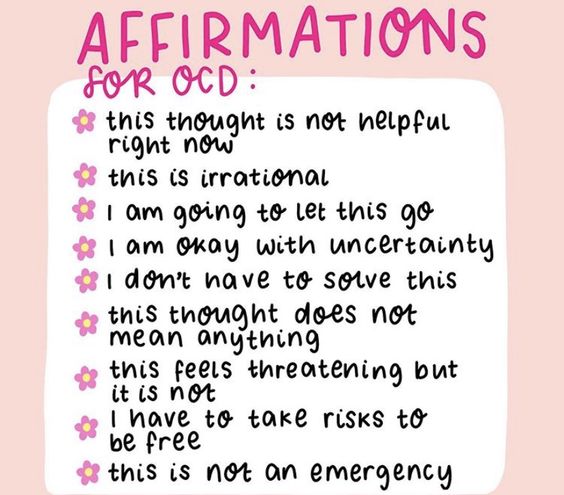 AFFIRMATIONS
FOR OCD:
this thought is not helpful
right now
this is irrational
I am going to let this go
I am okay with uncertainty
I don't have to solve this
this thought does not
mean anything
this feels threatening but
it is not
I have to take risks to
be free
this is not an emergency